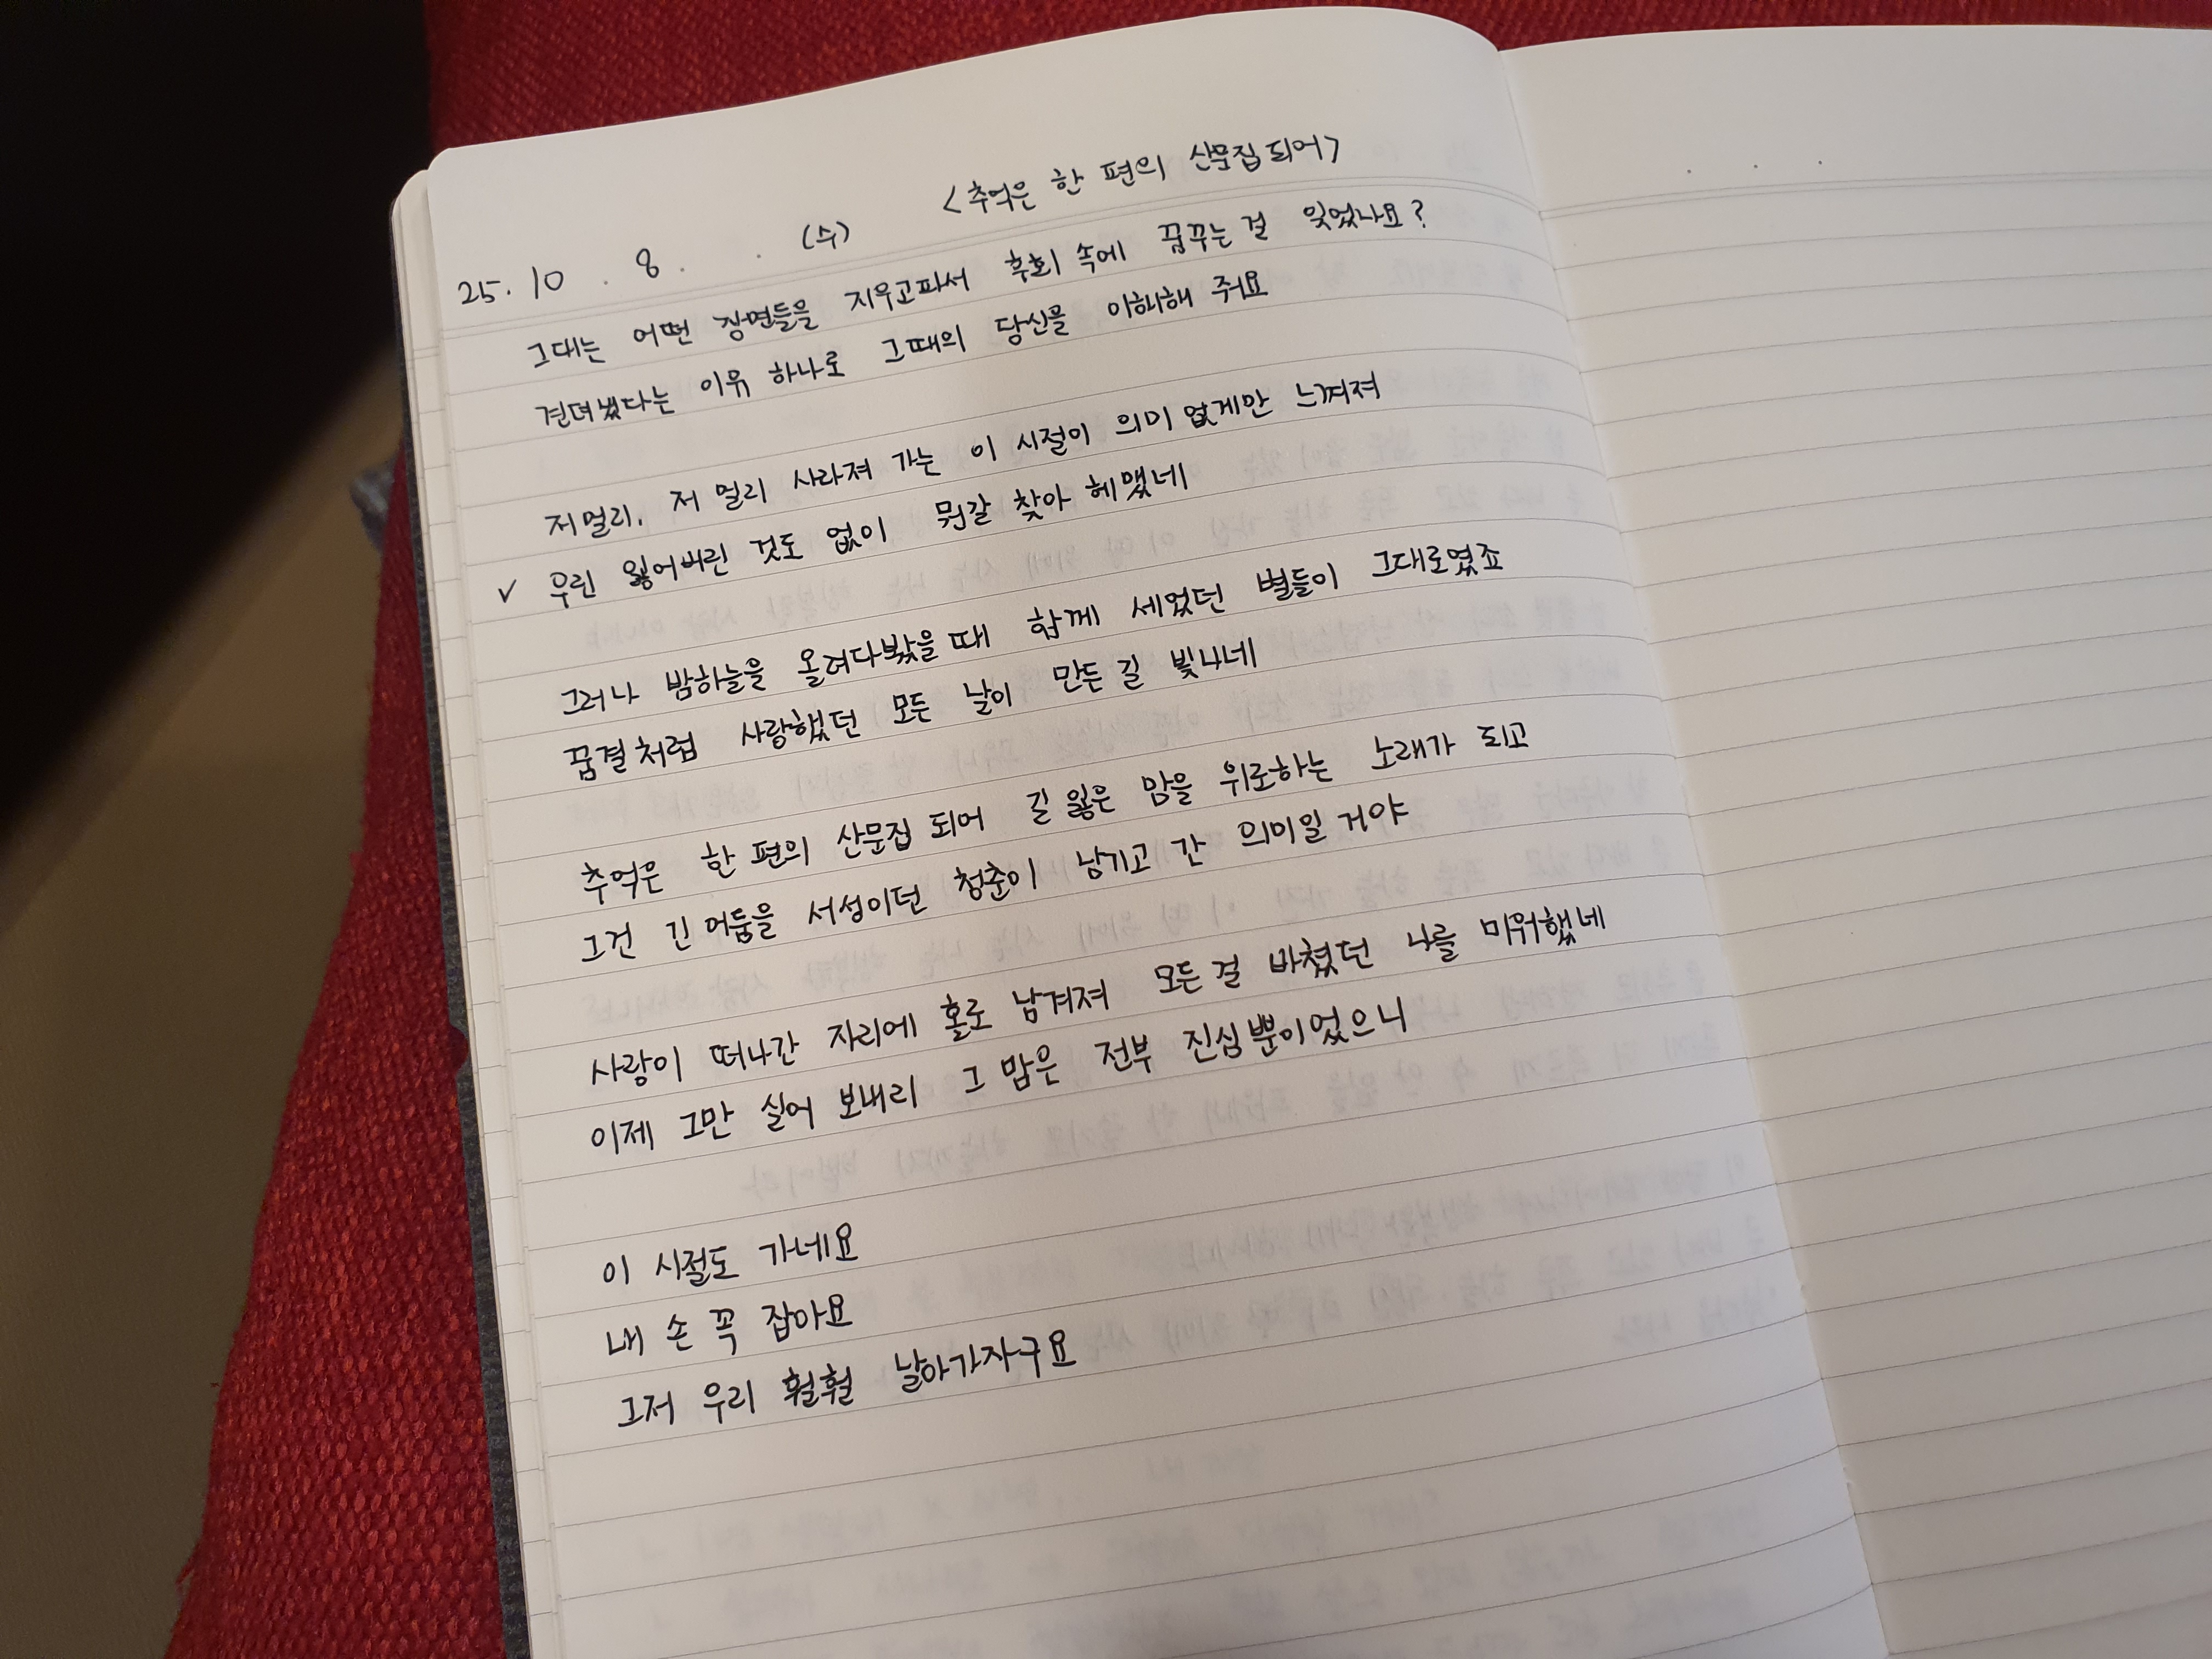 <추억은 한 편의 산문집 되어>
25. 10 . 8 . . (수)
그대는 어떤 장면들을 지우고파서 후회 속에 꿈꾸는 걸 잊었나요?
견뎌냈다는 이유 하나로 그때의 당신을 이해해 줘요
저 멀리, 저 멀리 사라져 가는 이 시절이 의미 없게만 느껴져
✓ 우린 잃어버린 것도 없이 뭔갈 찾아 헤맸네
그러나 밤하늘을 올려다봤을 때 함께 세었던 별들이 그대로였죠
꿈결처럼 사랑했던 모든 날이 만든 길 빛나네
추억은 한 편의 산문집 되어 길 잃은 맘을 위로하는 노래가 되고
그건 긴 어둠을 서성이던 청춘이 남기고 간 의미일 거야
사랑이 떠나간 자리에 홀로 남겨져 모든 걸 바쳤던 나를 미워했네
이제 그만 실어 보내리 그 맘은 전부 진심뿐이었으니
이 시절도 가네요
내 손 꼭 잡아요
그저 우리 훨훨 날아가자구요